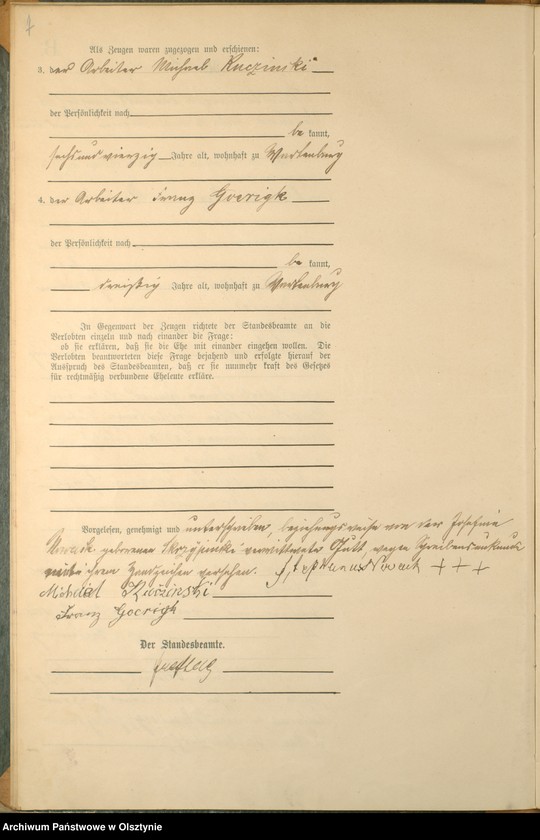 Als Zeugen waren zugezogen und erschienen:
3. der Arbeiter Michael Kuczinski
der Persönlichkeit nach
be kannt,
sechsundvierzig Jahre alt, wohnhaft zu Wartenburg
4. der Arbeiter Franz Goerigk
der Persönlichkeit nach
be kannt,
dreißig Jahre alt, wohnhaft zu Wartenburg
In Gegenwart der Zeugen richtete der Standesbeamte an die
Verlobten einzeln und nach einander die Frage:
ob sie erklären, daß sie die Ehe mit einander eingehen wollen. Die
Verlobten beantworteten diese Frage bejahend und erfolgte hierauf der
Ausspruch des Standesbeamten, daß er sie nunmehr kraft des Gesetzes
für rechtmäßig verbundene Eheleute erkläre.
Vorgelesen, genehmigt und unterschrieben, beziehungsweise von der Josefine
Nowack geborenen verwittwete wegen Schreibensunkunde
mit ihrem Handzeichen versehen. Nowack + + +
Michael Kuczinski
Franz Goerigk
Der Standesbeamte.
Archiwum Państwowe w Olsztynie